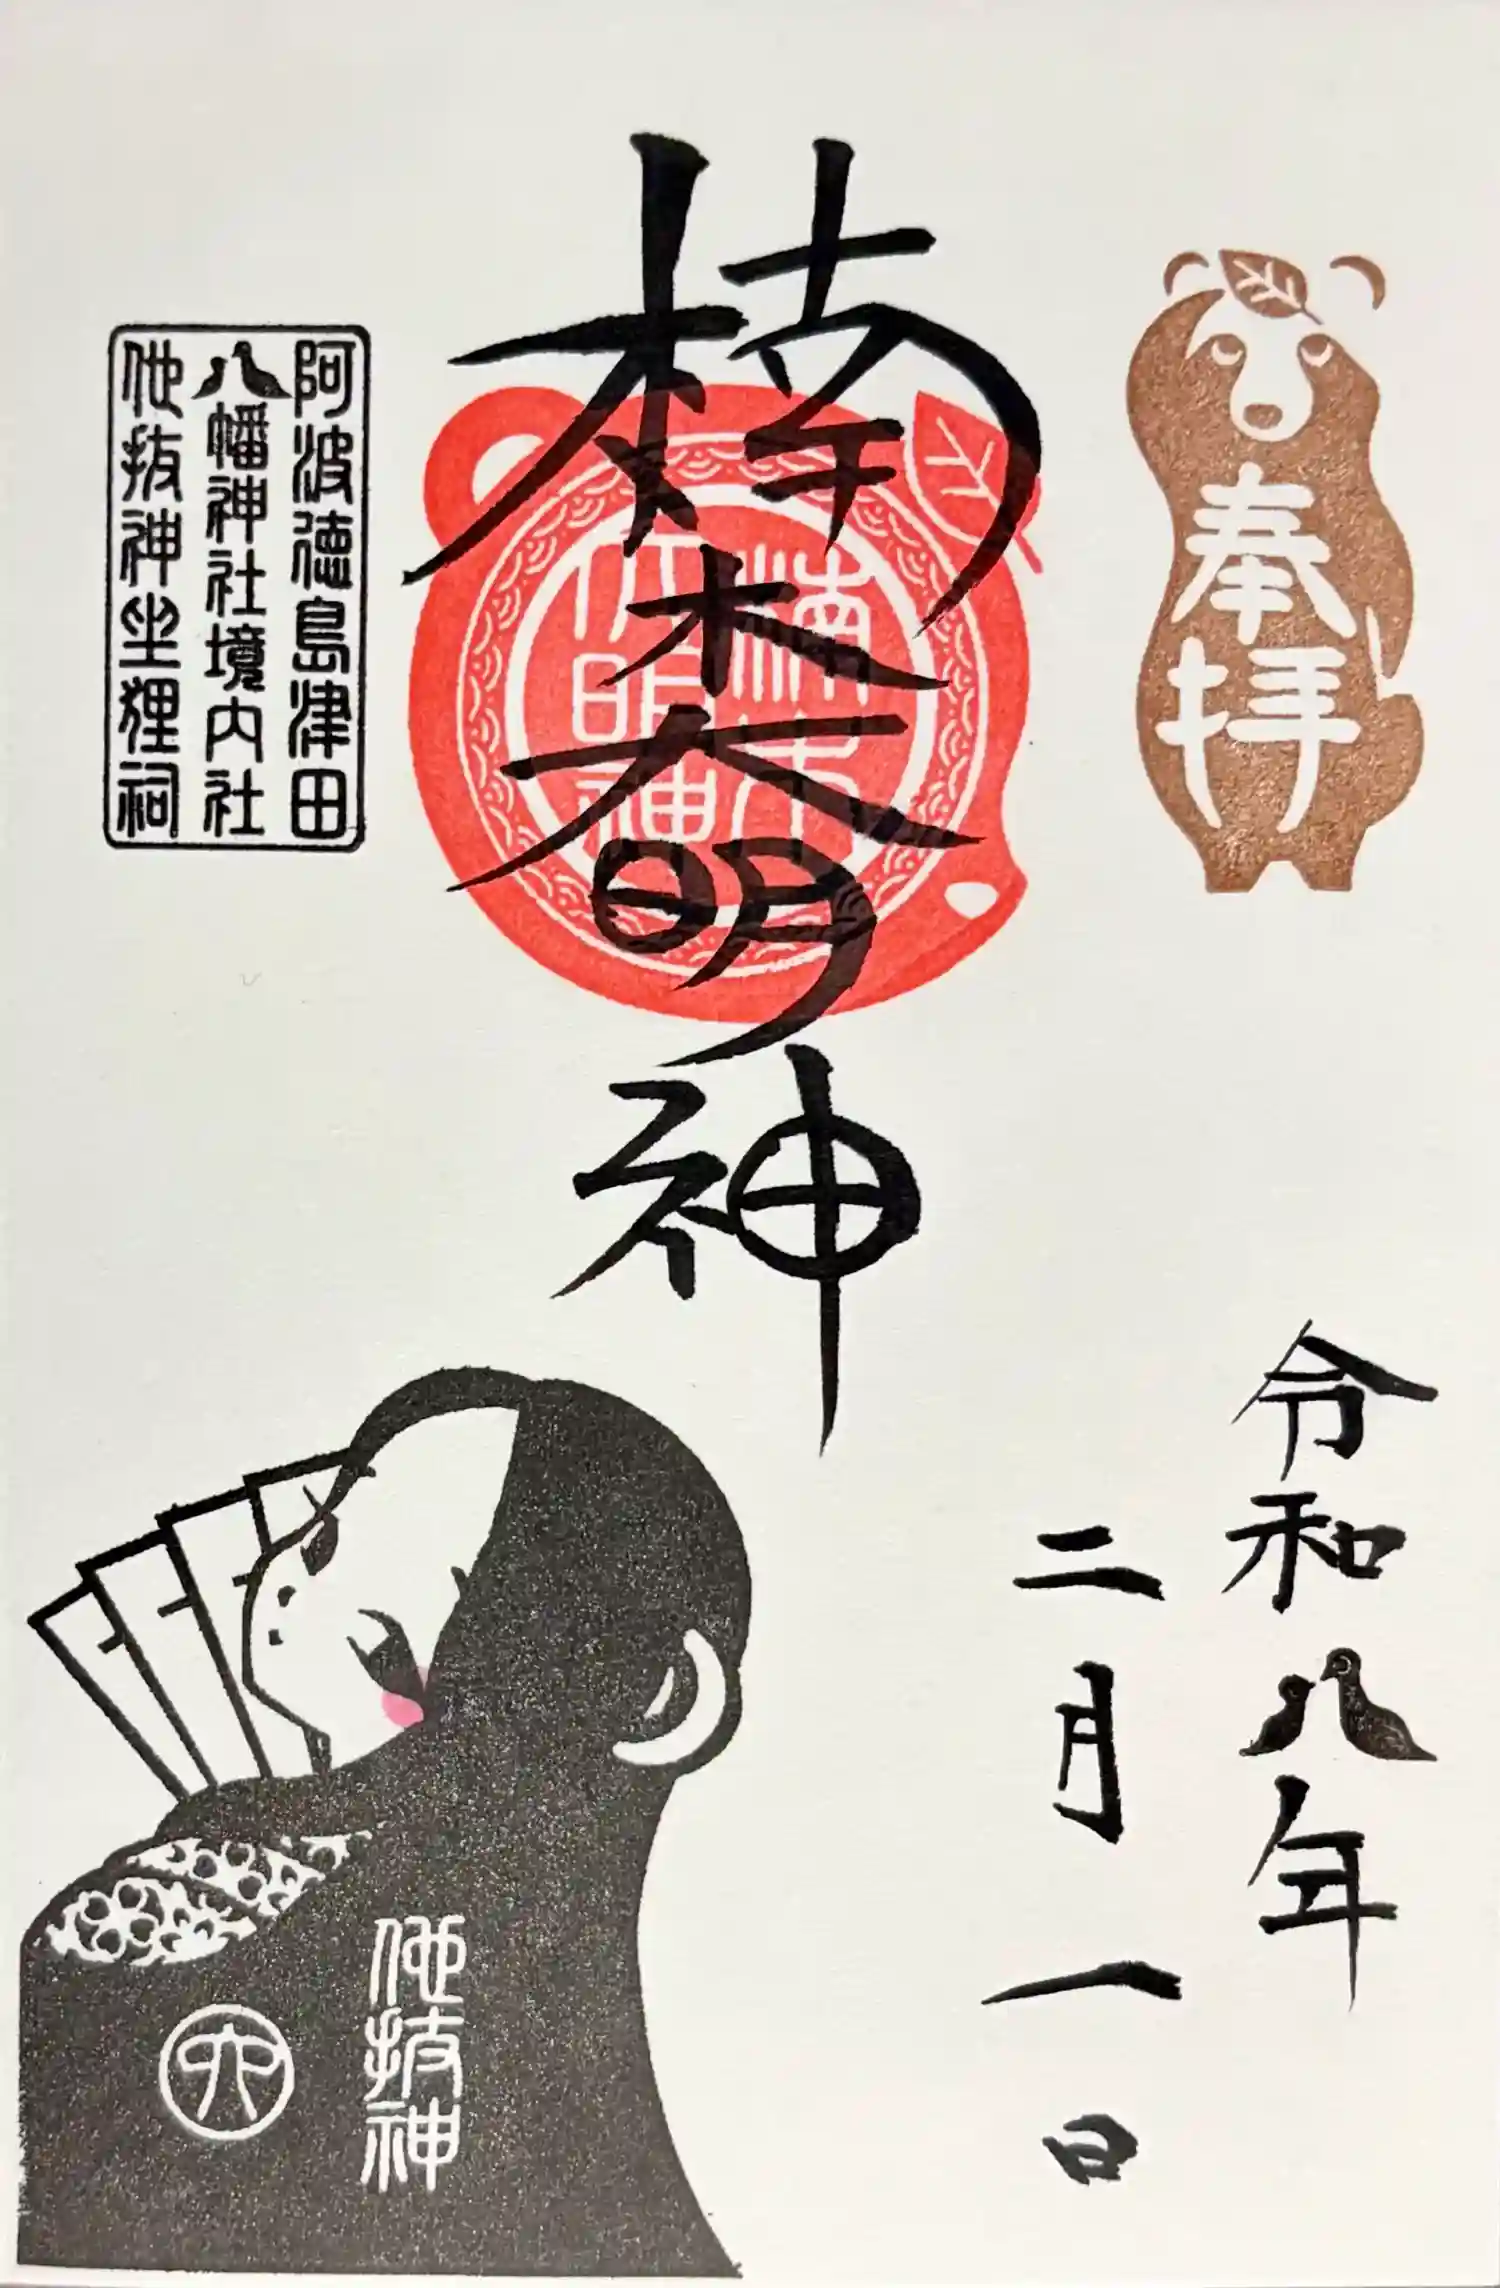 奉拝
令和八年
二月一日
楠木大明神
楠木
大明神
阿波徳島津田
八幡神社境内社
他抜神坐狸祠
他抜神